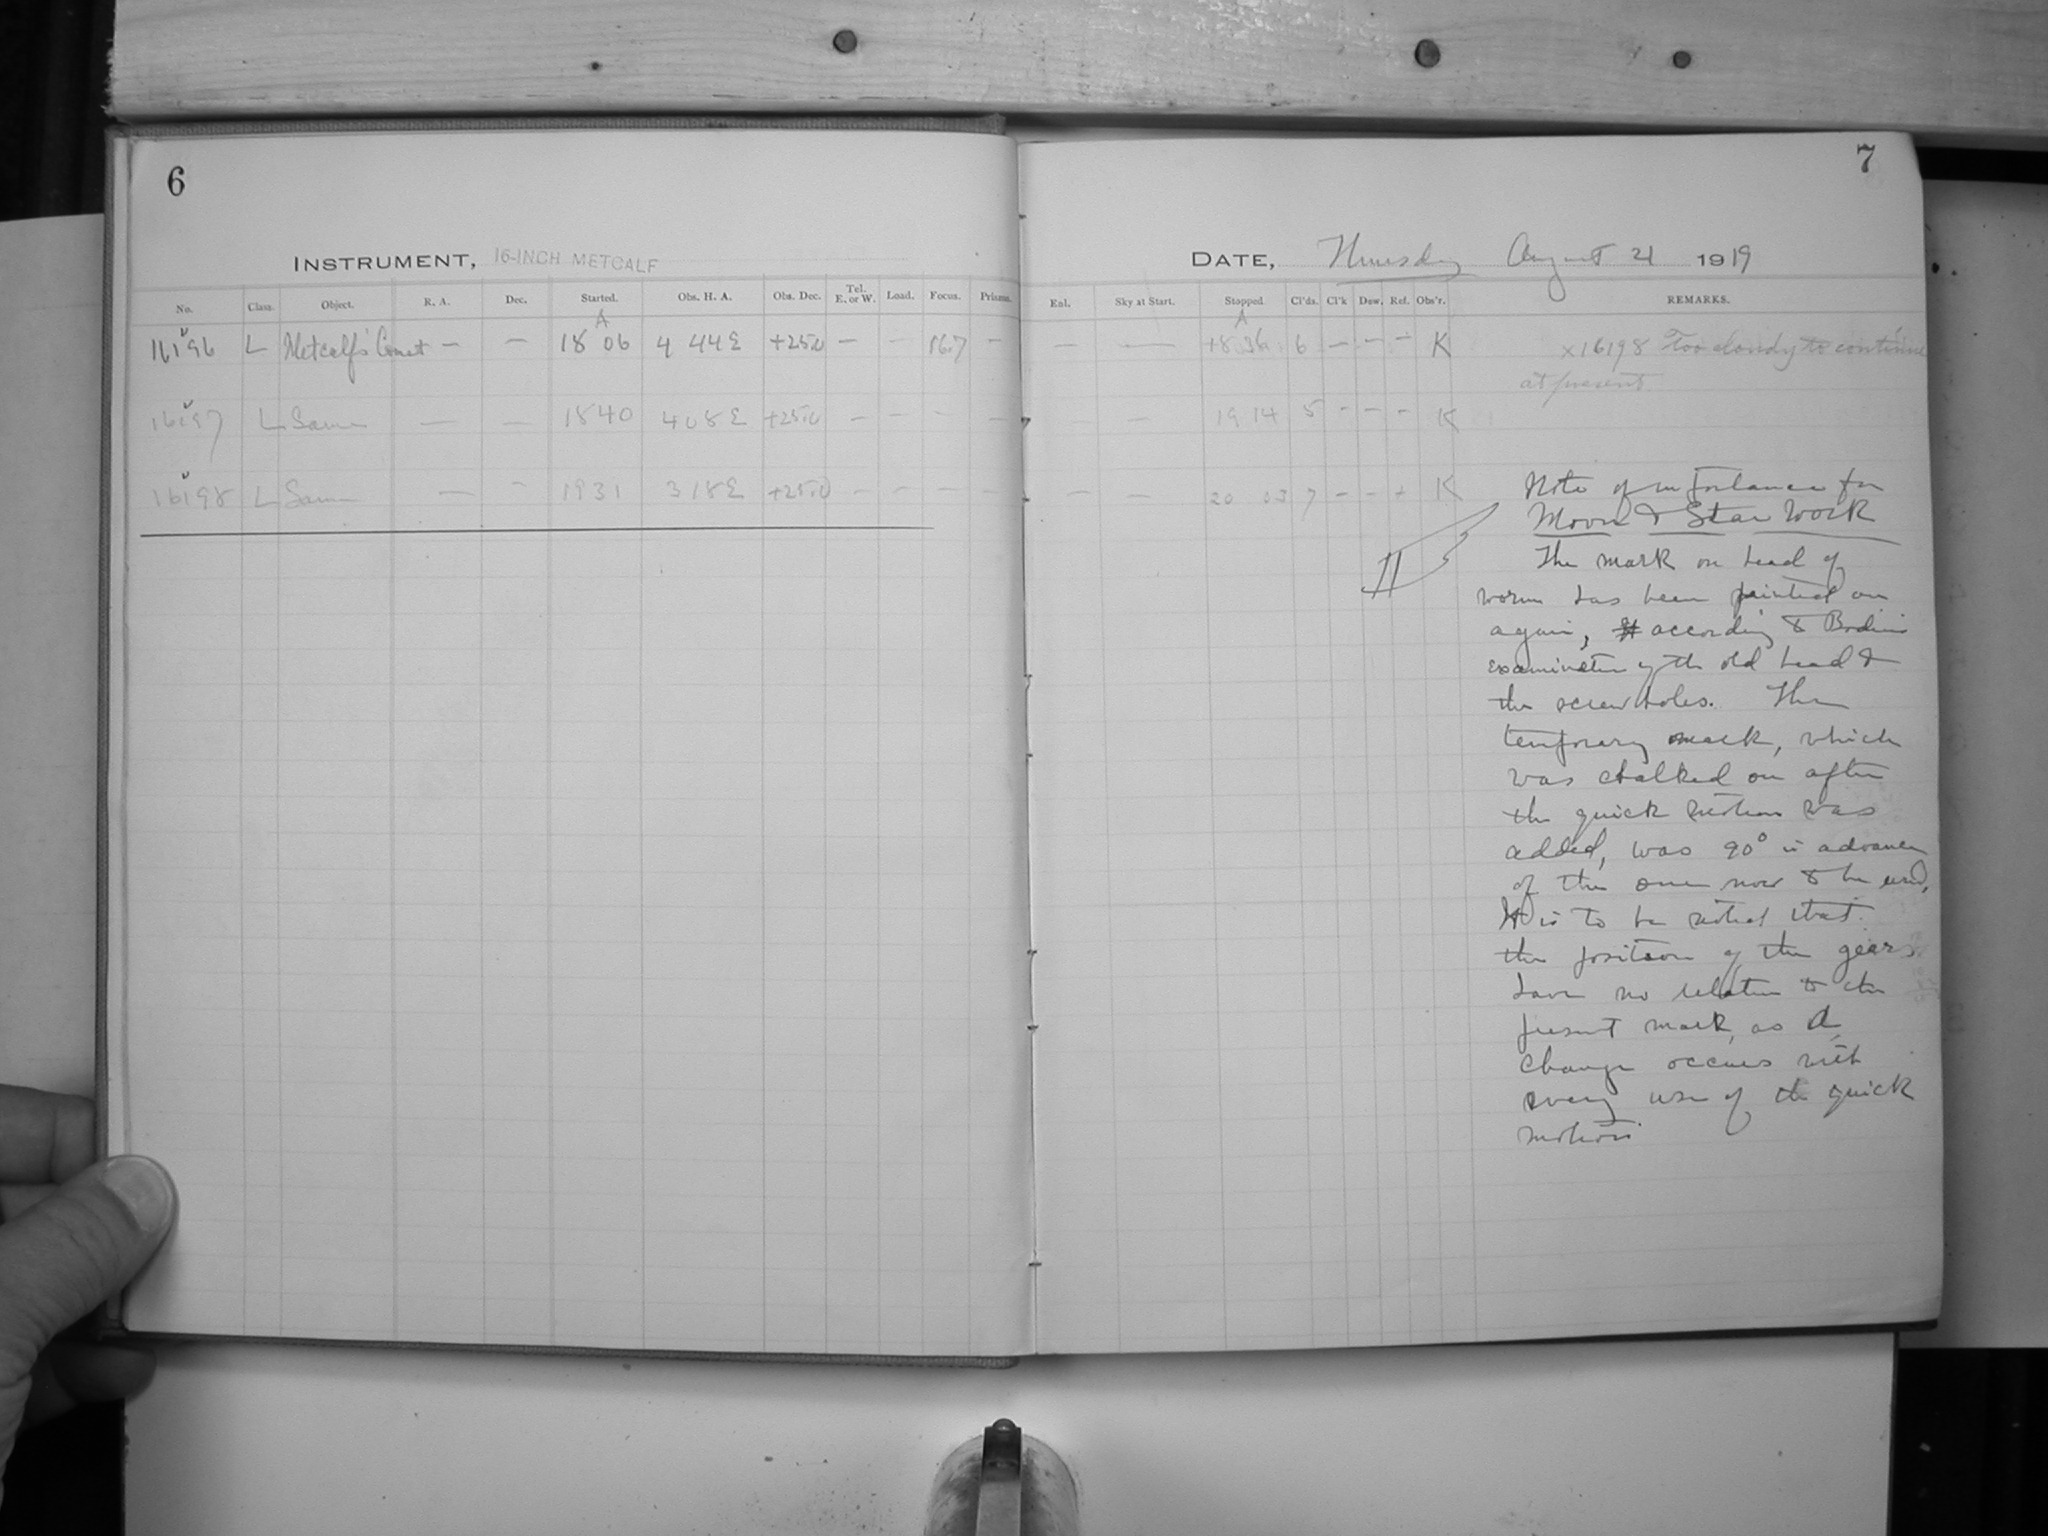 6
INSTRUMENT, 16-INCH METCALF
No. Class. Object. R. A. Dec. Started. Obs. H. A. Obs. Dec. Tel. E. or W. Load. Focus. Prisms.
A
16196 L Metcalf's Comet — — 18 06 4 44 E +25.0 — — 16.7 —
16197 L Same — — 18 40 4 08 E +25.0 — — — —
16198 L Same — — 19 31 3 18 E +25.0 — — — —
7
DATE, Thursday August 21 1919
Enl. Sky at Start. Stopped Cl'ds. Cl'k Dew. Ref. Obs'r. REMARKS.
A
— — 18 36 6 — — — K ×16198 Too cloudy to continue
at present.
— — 19 14 5 — — — K
— — 20 03 7 — — + K
Note of importance for
Moon & Star Work
The mark on head of
worm has been painted on
again, according to
examination of the old head &
the screw holes. The
temporary mark, which
was chalked on after
the quick motion was
added, was 90° in advance
of the one now to be used,
It is to be noted that
the position of the gears
have no relation to the
present mark, as a
change occurs with
every use of the quick
motion